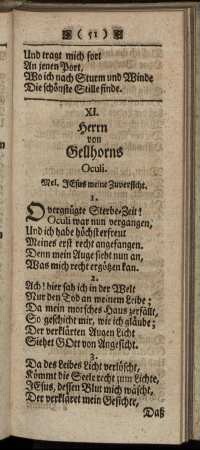 ( 51 )
Und tragt mich fort
An jenen Port,
Wo ich nach Sturm und Winde
Die schönste Stille finde.
XI.
Herrn
von
Gellhorns
Oculi.
Mel. JEsus meine Zuversicht.
1.
O vergnügte Sterbe-Zeit!
Oculi war nun vergangen,
Und ich habe höchst erfreut
Meines erst recht angefangen.
Denn mein Auge sieht nun an,
Was mich recht ergötzen kan.
2.
Ach! hier sah ich in der Welt
Nur den Tod an meinem Leibe;
Da mein morsches Haus zerfällt,
So geschicht mir, wie ich gläube;
Der verklärten Augen Licht
Siehet GOtt von Angesicht.
3.
Da des Leibes Licht verlöscht,
Kömmt die Seele recht zum Lichte,
JEsus, dessen Blut mich wäscht,
Der verkläret mein Gesichte,
Daß